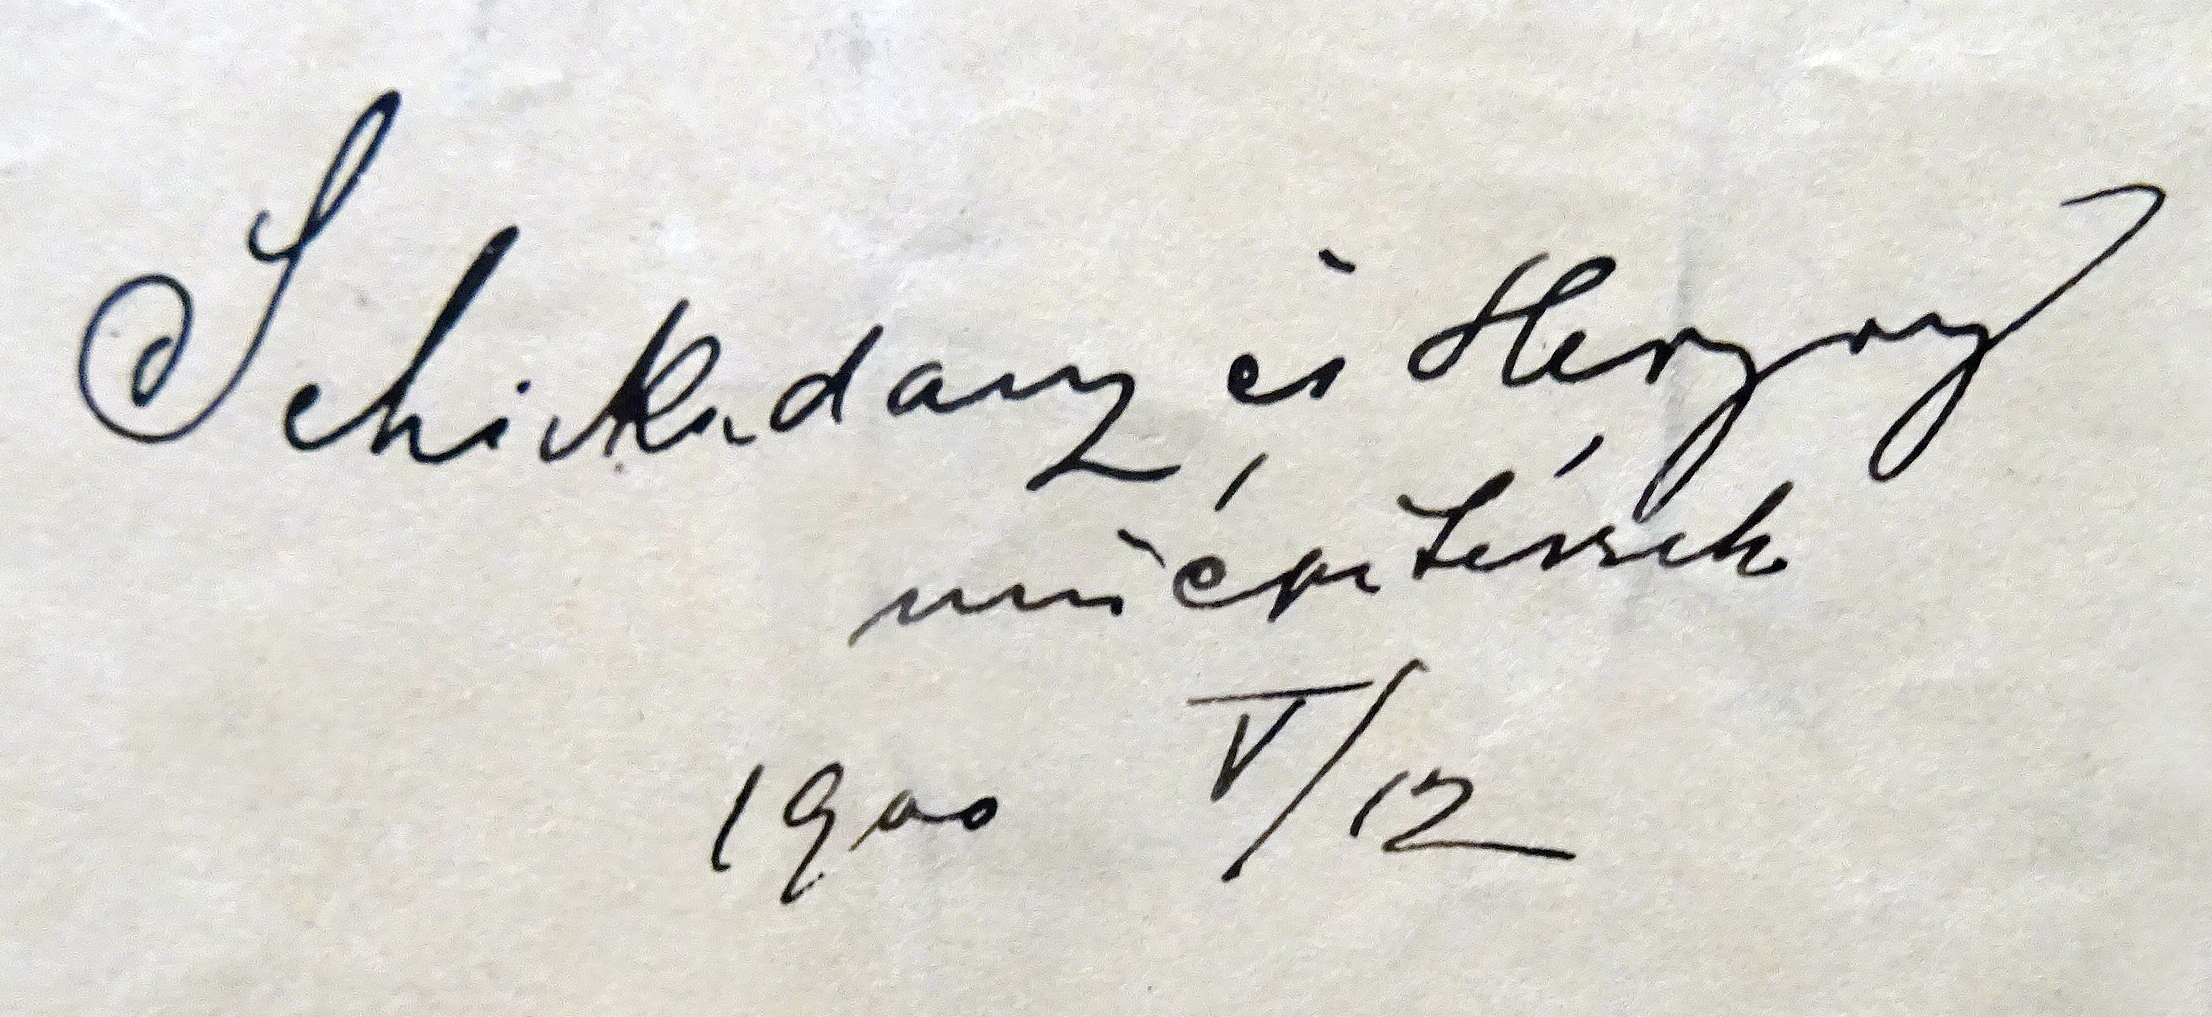 Schickedanz és Herzog
műépítészek
1900 V/12